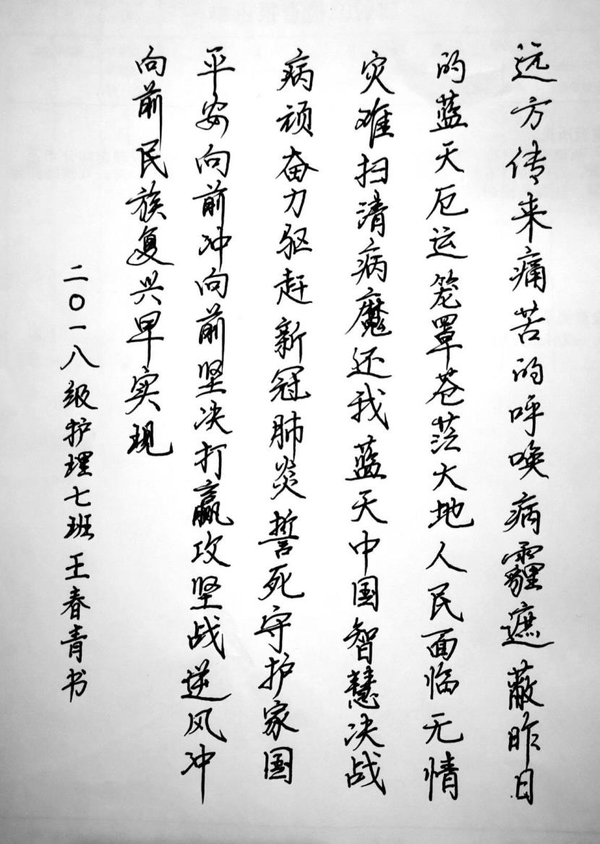 远方传来痛苦的呼唤病霾遮蔽昨日
的蓝天厄运笼罩苍茫大地人民面临无情
灾难扫清病魔还我蓝天中国智慧决战
病顽奋力驱赶新冠肺炎誓死守护家国
平安向前冲向前坚决打赢攻坚战逆风冲
向前民族复兴早实现
二〇一八级护理七班王春青书